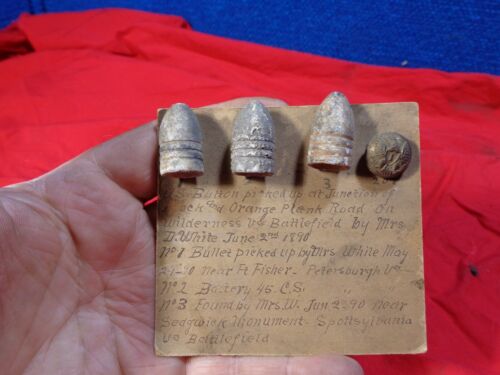 3
U.S. Button picked up at Junction of
ck and Orange Plank Road on
Wilderness Va Battlefield by Mrs
D. White June 2nd 1890
No 1 Bullet picked up by Mrs White May
29-90 near Ft Fisher - Petersburgh Va
No 2 Battery 45 C.S. " "
No 3 Found by Mrs. W. Jun 2-90 near
Sedgwick Monument - Spottsylvania
Va Battlefield